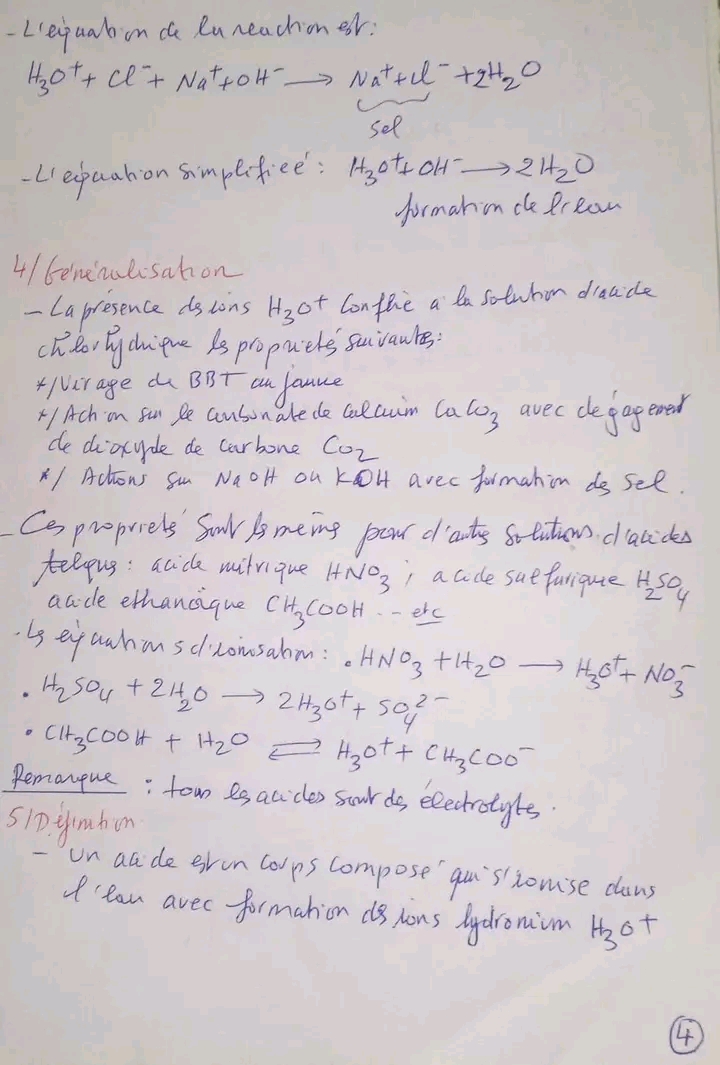 - L'équation de la reaction est:
H₃O⁺ + Cl⁻ + Na⁺ + OH⁻ → Na⁺ + Cl⁻ + 2H₂O
sel
- L'équation simplifieé : H₃O⁺ + OH⁻ → 2H₂O
formation de l'eau
4/ Généralisation
- La présence des ions H₃O⁺ confliè a la solution d'acide
chlorhydrique les proprietés suivantes:
*/ Virage de BBT au jaune
*/ Action sur le carbonate de calcium CaCO₃ avec dégagement
de dioxyde de carbone CO₂
*/ Actions sur NaOH ou KOH avec formation de sel.
- Ces proprieté sont les même pour d'autres solutions d'acides
telque : acide nitrique HNO₃ ; acide sulfurique H₂SO₄
acide ethanoïque CH₃COOH ... etc
- les équations d'ionisation : • HNO₃ + H₂O → H₃O⁺ + NO₃⁻
• H₂SO₄ + 2H₂O → 2H₃O⁺ + SO₄²⁻
• CH₃COOH + H₂O ⇌ H₃O⁺ + CH₃COO⁻
Remarque : tous les acides sont des électrolytes.
5/ Définition
- Un acide est un corps composé qui s'ionise dans
l'eau avec formation des ions hydronium H₃O⁺
4